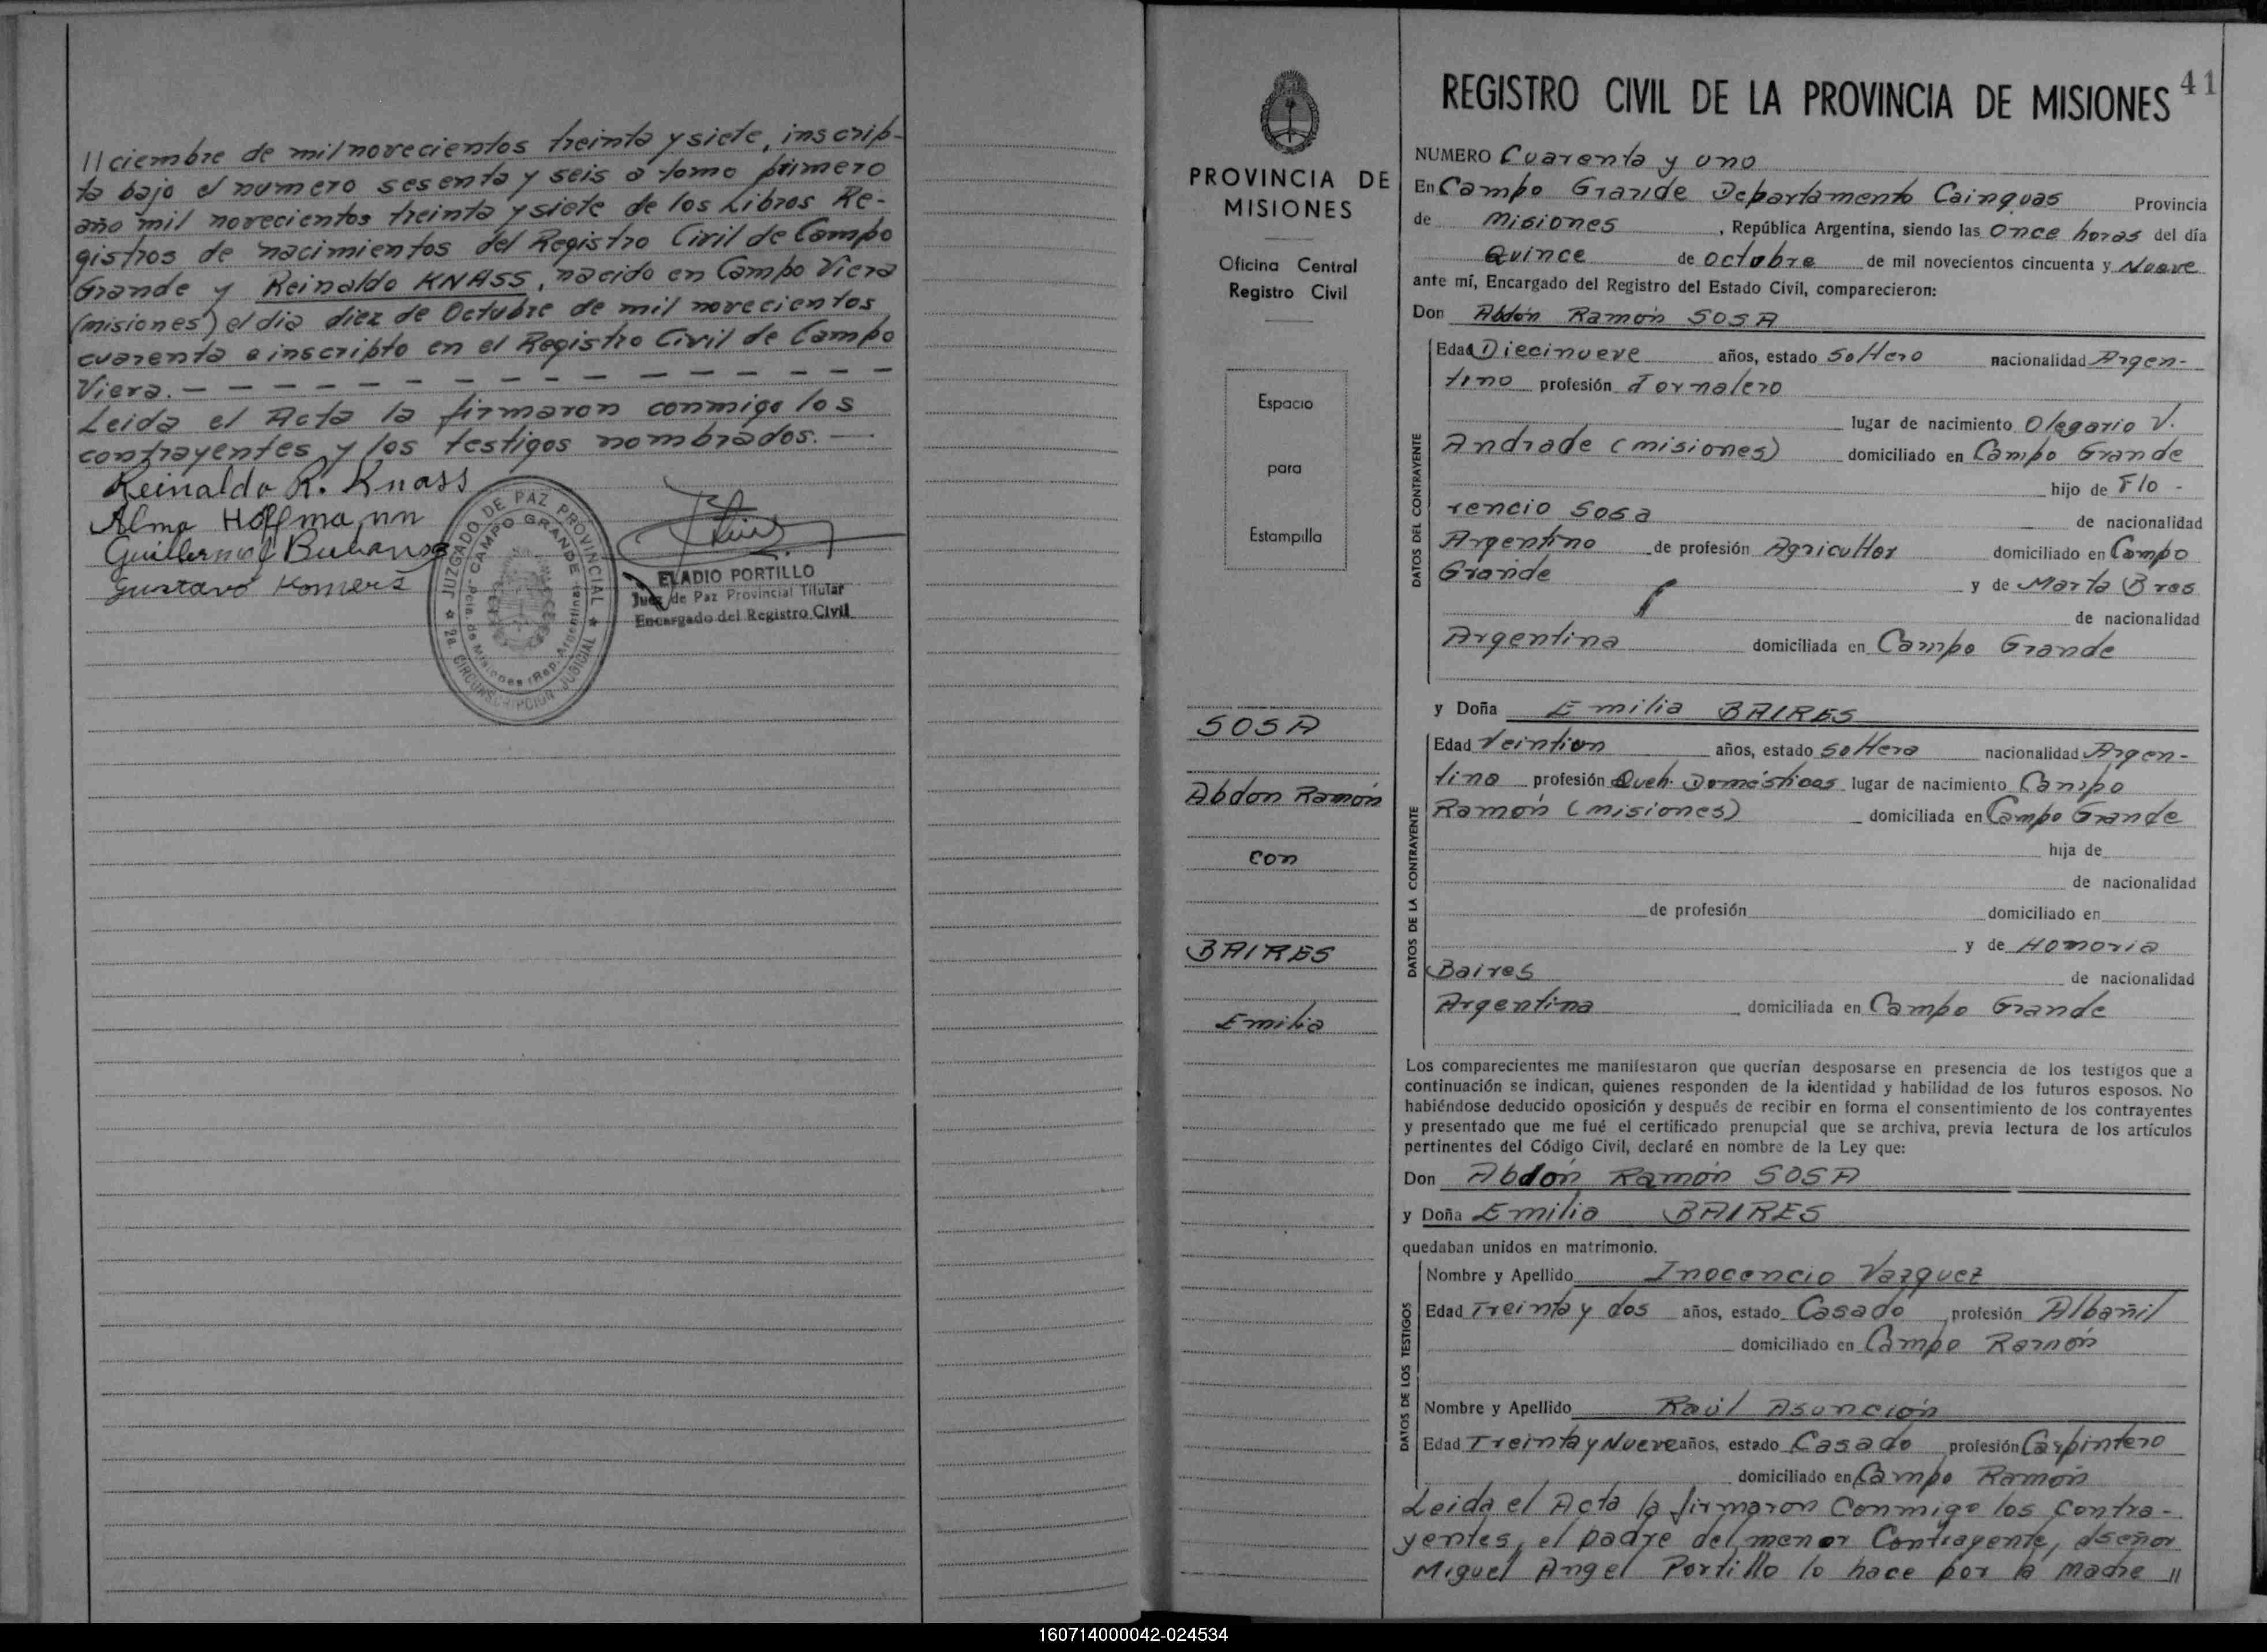 //ciembre de mil novecientos treinta y siete, inscrip-
ta bajo el numero sesenta y seis o tomo primero
año mil novecientos treinta y siete de los Libros Re-
gistros de nacimientos del Registro Civil de Campo
Grande y Reinaldo KNASS, nacido en Campo Viera
(misiones) el dia diez de Octubre de mil novecientos
cuarenta e inscripto en el Registro Civil de Campo
Viera. — — — — — — — — — — —
Leida el Acta la firmaron conmigo los
contrayentes y los testigos nombrados. —
Reinaldo R. Knass
Alma Hoffmann
Guillermo
Gustavo
JUZGADO DE PAZ PROVINCIAL
CAMPO GRANDE
Pcia. de Misiones (Rep. Argentina)
2a. CIRCUNSCRIPCION JUDICIAL
ELADIO PORTILLO
Juez de Paz Provincial Titular
Encargado del Registro Civil
PROVINCIA DE
MISIONES
Oficina Central
Registro Civil
Espacio
para
Estampilla
SOSA
Abdon Ramón
con
BAIRES
Emilia
41
REGISTRO CIVIL DE LA PROVINCIA DE MISIONES
NUMERO Cuarenta y uno
En Campo Grande Departamento Cainguas Provincia
de Misiones, República Argentina, siendo las Once horas del día
Quince de Octubre de mil novecientos cincuenta y Nueve
ante mí, Encargado del Registro del Estado Civil, comparecieron:
Don Abdón Ramón SOSA
DATOS DEL CONTRAYENTE
Edad Diecinueve años, estado soltero nacionalidad Argen-
tino profesión Jornalero
lugar de nacimiento Olegario V.
Andrade (misiones) domiciliado en Campo Grande
hijo de Flo-
rencio Sosa de nacionalidad
Argentino de profesión Agricultor domiciliado en Campo
Grande y de Marta Bres
de nacionalidad
Argentina domiciliada en Campo Grande
y Doña Emilia BAIRES
DATOS DE LA CONTRAYENTE
Edad Veintiun años, estado soltera nacionalidad Argen-
tina profesión Queh. Domésticos lugar de nacimiento Campo
Ramón (misiones) domiciliada en Campo Grande
hija de
de nacionalidad
de profesión domiciliado en
y de Homoria
Baires de nacionalidad
Argentina domiciliada en Campo Grande
Los comparecientes me manifestaron que querían desposarse en presencia de los testigos que a
continuación se indican, quienes responden de la identidad y habilidad de los futuros esposos. No
habiéndose deducido oposición y después de recibir en forma el consentimiento de los contrayentes
y presentado que me fué el certificado prenupcial que se archiva, previa lectura de los artículos
pertinentes del Código Civil, declaré en nombre de la Ley que:
Don Abdón Ramón SOSA
y Doña Emilia BAIRES
quedaban unidos en matrimonio.
DATOS DE LOS TESTIGOS
Nombre y Apellido Inocencio Vazquez
Edad Treinta y dos años, estado Casado profesión Albañil
domiciliado en Campo Ramón
Nombre y Apellido Raúl Asunción
Edad Treinta y Nueve años, estado Casado profesión Carpintero
domiciliado en Campo Ramón
Leida el Acta la firmaron Conmigo los Contra-
yentes, el padre del menor Contrayente, el señor
Miguel Angel Portillo lo hace por la madre //
160714000042-024534